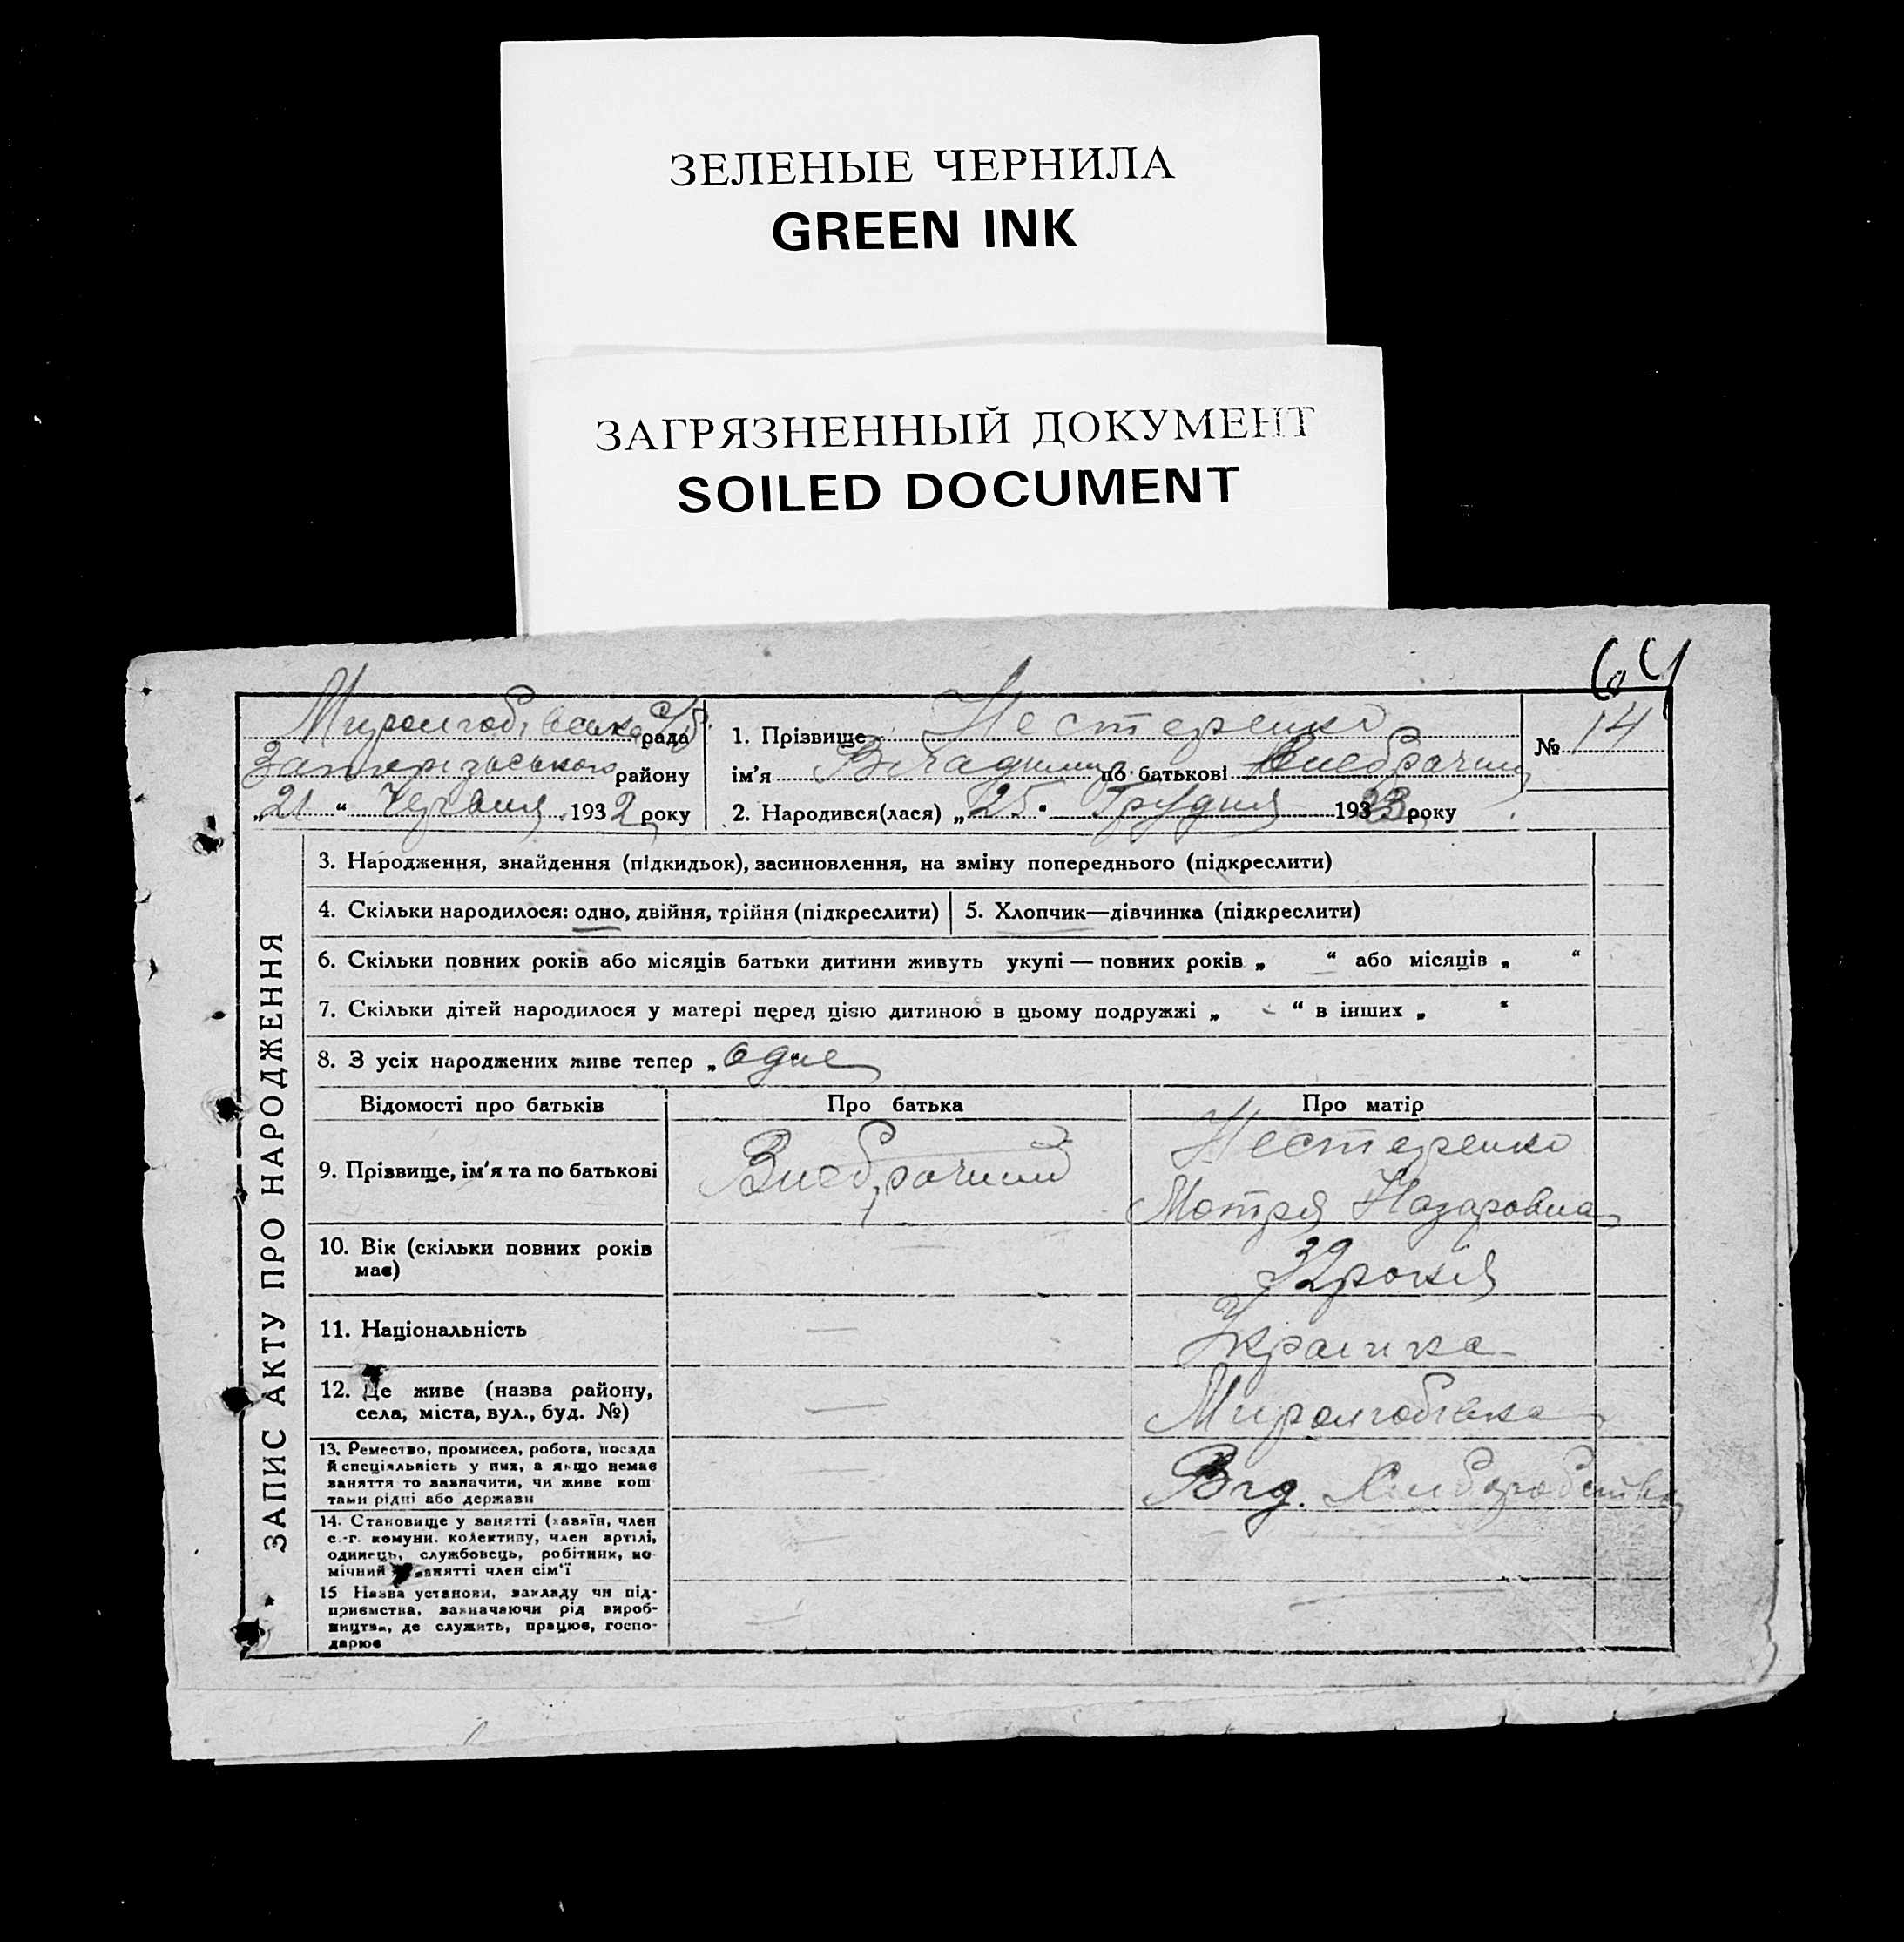 ЗЕЛЕНЫЕ ЧЕРНИЛА
GREEN INK
ЗАГРЯЗНЕННЫЙ ДОКУМЕНТ
SOILED DOCUMENT
64
рада
району
„21“ Червня 1932 року
1. Прізвище Нестеренко
ім'я по батькові
2. Народився(лася) „25“ Грудня 193 року
№ 14
ЗАПИС АКТУ ПРО НАРОДЖЕННЯ
3. Народження, знайдення (підкидьок), засиновлення, на зміну попереднього (підкреслити)
4. Скільки народилося: одно, двійня, трійня (підкреслити)
5. Хлопчик—дівчинка (підкреслити)
6. Скільки повних років або місяців батьки дитини живуть укупі — повних років „ “ або місяців „ “
7. Скільки дітей народилося у матері перед цією дитиною в цьому подружжі „ - “ в інших „ “
8. З усіх народжених живе тепер „одне
Відомості про батьків
Про батька
Про матір
9. Прізвище, ім'я та по батькові
Нестеренко
Мотря Назаровна
10. Вік (скільки повних років
має)
32 років
11. Національність
—
Українка
12. Де живе (назва району,
села, міста, вул., буд. №)
—
13. Ремество, промисел, робота, посада
й спеціяльність у них, а якщо немає
заняття то зазначити, чи живе кош-
тами рідні або держави
—
14. Становище у занятті (хазяїн, член
с.-г. комуни, колективу, член артілі,
одинець, службовець, робітник, по-
мічний занятті член сім'ї
—
15 Назва установи, закладу чи під-
приємства, зазначаючи рід вироб-
ництва, де служить, працює, госпо-
дарює
—